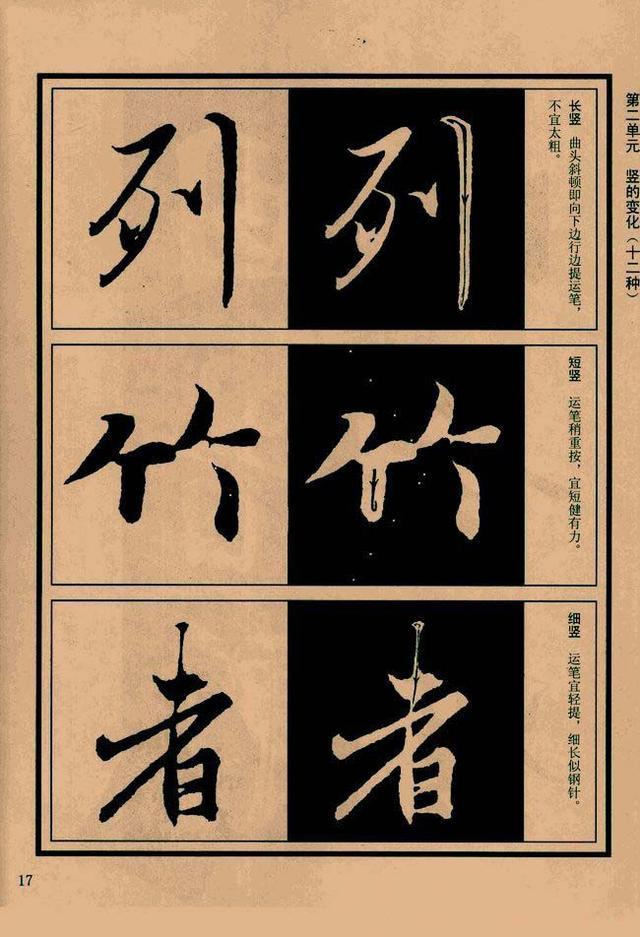 第二单元 竖的变化（十二种）
长竖 曲头斜顿即向下边行边提运笔，
不宜太粗。
列 列
短竖 运笔稍重按，宜短健有力。
竹 竹
细竖 运笔宜轻提，细长似钢针。
者 者
17